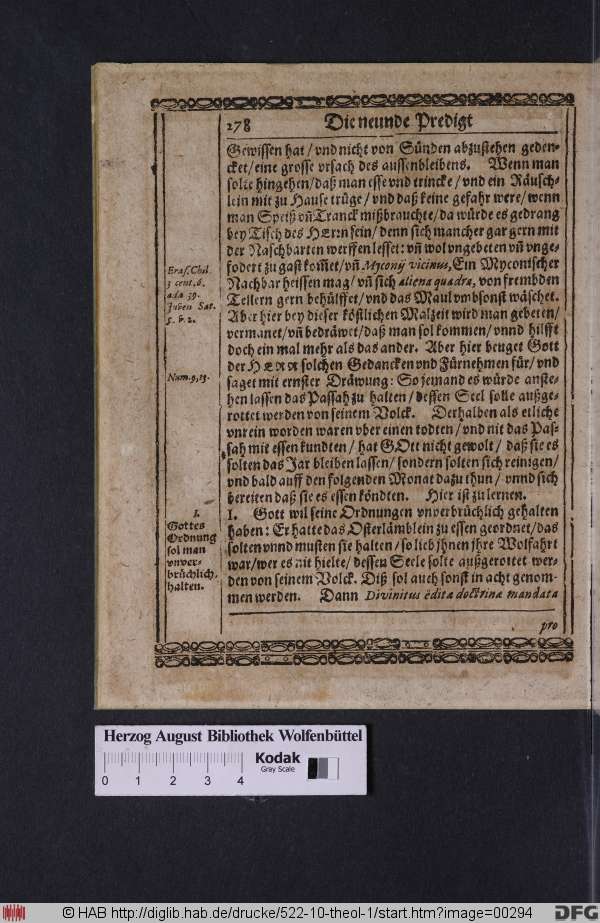 278 Die neunde Predigt
Gewissen hat / vnd nicht von Sünden abzustehen geden-
cket / eine grosse vrsach des aussenbleibens. Wenn man
solte hingehen / daß man esse vnd trincke / vnd ein Räusch-
lein mit zu Hause trüge / vnd daß keine gefahr were / wenn
man Speiß vñ Tranck mißbrauchte / da würde es gedrang
bey Tisch des HErrn sein / denn sich mancher gar gern mit
der Naschbarten werffen lesset: vñ wol vngebeten vñ vnge-
fodert zu gast kom̃et / vñ Myconij vicinus, Ein Myconischer
Nachbar heissen mag / vñ sich aliena quadra, von frembden
Tellern gern behülffet / vnd das Maul vmbsonst wäschet.
Aber hier bey dieser köstlichen Malzeit wird man gebeten /
vermanet / vñ bedräwet / daß man sol kommen / vnnd hilfft
doch ein mal mehr als das ander. Aber hier beuget Gott
der HERR solchen Gedancken vnd Fürnehmen für / vnd
saget mit ernster Dräwung: So jemand es würde anste-
hen lassen das Passah zu halten / dessen Seel solle außge-
rottet werden von seinem Volck. Derhalben als etliche
vnrein worden waren vber einen todten / vnd nit das Pas-
sah mit essen kundten / hat GOtt nicht gewolt / daß sie es
solten das Jar bleiben lassen / sondern solten sich reinigen /
vnd bald auff den folgenden Monat dazu thun / vnnd sich
bereiten daß sie es essen köndten. Hier ist zu lernen.
I. Gott wil seine Ordnungen vnverbrüchlich gehalten
haben: Er hatte das Osterlämblein zu essen geordnet / das
solten vnnd musten sie halten / so lieb jhnen jhre Wolfahrt
war / wer es nit hielte / dessen Seele solte außgerottet wer-
den von seinem Volck. Diß sol auch sonst in acht genom-
men werden. Dann Divinitus edita doctrina mandata
pro
Eras. Chil.
3 cent. 6.
ada 39.
Juven Sat.
5. v. 2.
Num. 9, 13.
1.
Gottes
Ordnung
sol man
vnver-
brüchlich
halten.
Herzog August Bibliothek Wolfenbüttel
Kodak
Gray Scale
0 1 2 3 4
© HAB http://diglib.hab.de/drucke/522-10-theol-1/start.htm?image=00294
DFG